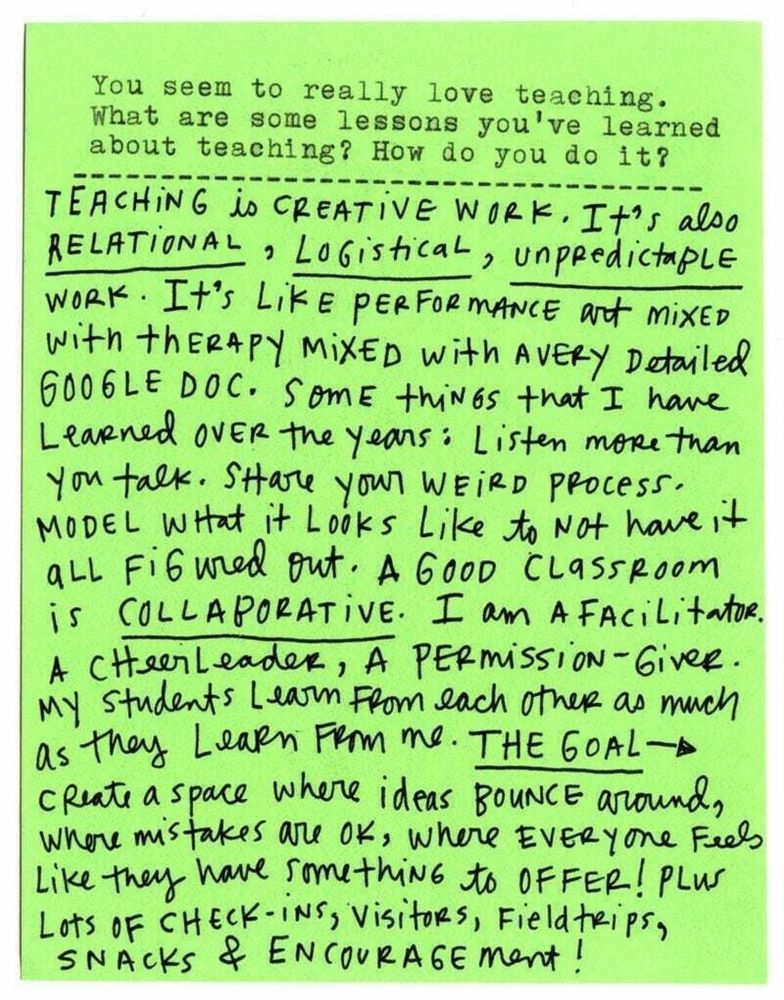 You seem to really love teaching.
What are some lessons you've learned
about teaching? How do you do it?
TEACHING is CREATIVE WORK. It's also
RELATIONAL, LOGISTICAL, UNPREDICTABLE
WORK. It's LIKE PERFORMANCE art MIXED
with THERAPY MIXED with A VERY Detailed
GOOGLE DOC. SOME things that I have
Learned OVER the years: Listen more than
you talk. SHare your WEIRD PROCESS.
MODEL WHat it LOOKS Like to NOT have it
ALL FiGured out. A GOOD CLASSROOM
is COLLABORATIVE. I am A FACiLitatoR.
A CHeerLeadeR, A PERMISSION-GiveR.
MY students Learn FROM each otheR as much
as they LeaRn FROM me. THE GOAL→
CReate a space where ideas BOUNCE around,
where mistakes are OK, where EVERYone Feels
Like they have somethiNG to OFFER! PLus
Lots OF CHECK-INs, VisitoRs, Field tRips,
SNACKS & ENCOURAGEment!